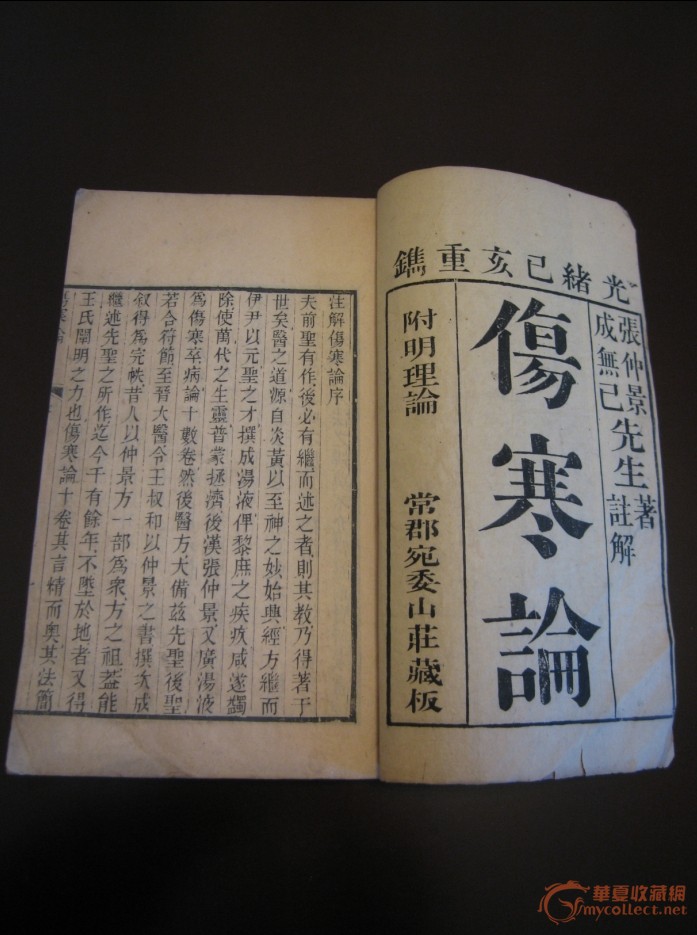 光緒己亥重鐫
張仲景先生著
成無己先生註解
傷寒論
附明理論
常郡宛委山莊藏板
註解傷寒論序
夫前聖有作後必有繼而述之者則其教乃得著于
世矣醫之道源自炎黃以至神之妙始興經方繼而
伊尹以元聖之才撰成湯液俾黎庶之疾疚咸遂蠲
除使萬代之生靈普蒙拯濟後漢張仲景又廣湯液
為傷寒卒病論十數卷然後醫方大備茲先聖後聖
若合符節至晉大醫令王叔和以仲景之書撰次成
叙得為完帙昔人以仲景方一部為衆方之祖葢能
繼述先聖之所作迄今千有餘年不墜於地者又得
王氏闡明之力也傷寒論十卷其言精而奧其法簡
華夏收藏網
mycollect.net